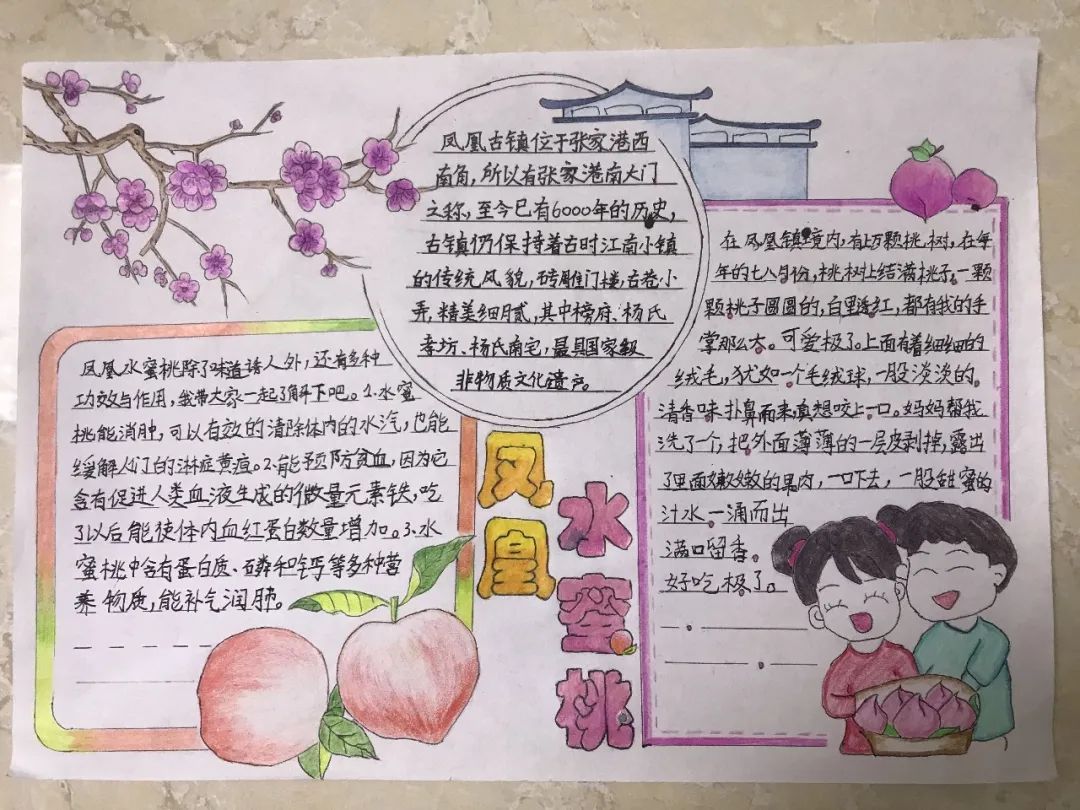 凤凰古镇位于张家港西
南角,所以有张家港南大门
之称,至今已有6000年的历史,
古镇仍保持着古时江南小镇
的传统风貌,砖雕门楼,古巷小
弄,精美细腻,其中榜府、杨氏
孝坊、杨氏南宅,最具国家级
非物质文化遗产。
凤凰水蜜桃除了味道诱人外,还有多种
功效与作用,我带大家一起了解下吧。1.水蜜
桃能消肿,可以有效的清除体内的水汽,也能
缓解人们的淋症黄疸。2.能预防贫血,因为它
含有促进人类血液生成的微量元素铁,吃
了以后能使体内血红蛋白数量增加。3.水
蜜桃中含有蛋白质、磷和钙等多种营
养物质,能补气润肺。
凤凰
水蜜桃
在凤凰镇境内,有上万颗桃树,在每
年的七八月份,桃树上结满桃子。一颗
颗桃子圆圆的,白里透红,都有我的手
掌那么大。可爱极了。上面有着细细的
绒毛,犹如一个毛绒球,一股淡淡的
清香味扑鼻而来,真想咬上一口。妈妈帮我
洗了个,把外面薄薄的一层皮剥掉,露出
了里面嫩嫩的果肉,一口下去,一股甜蜜的
汁水一涌而出
满口留香。
好吃极了。